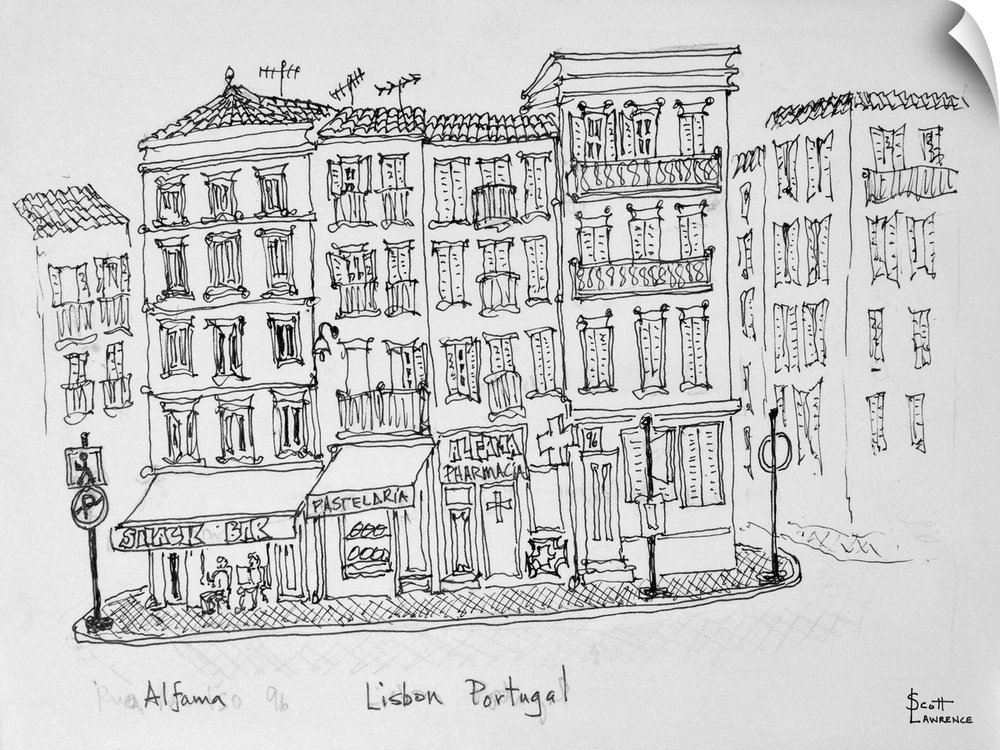 ALFAMA
PHARMACIA
96
PASTELARIA
SNACK BAR
P
Alfama 96
Lisbon Portugal
SCOTT
LAWRENCE